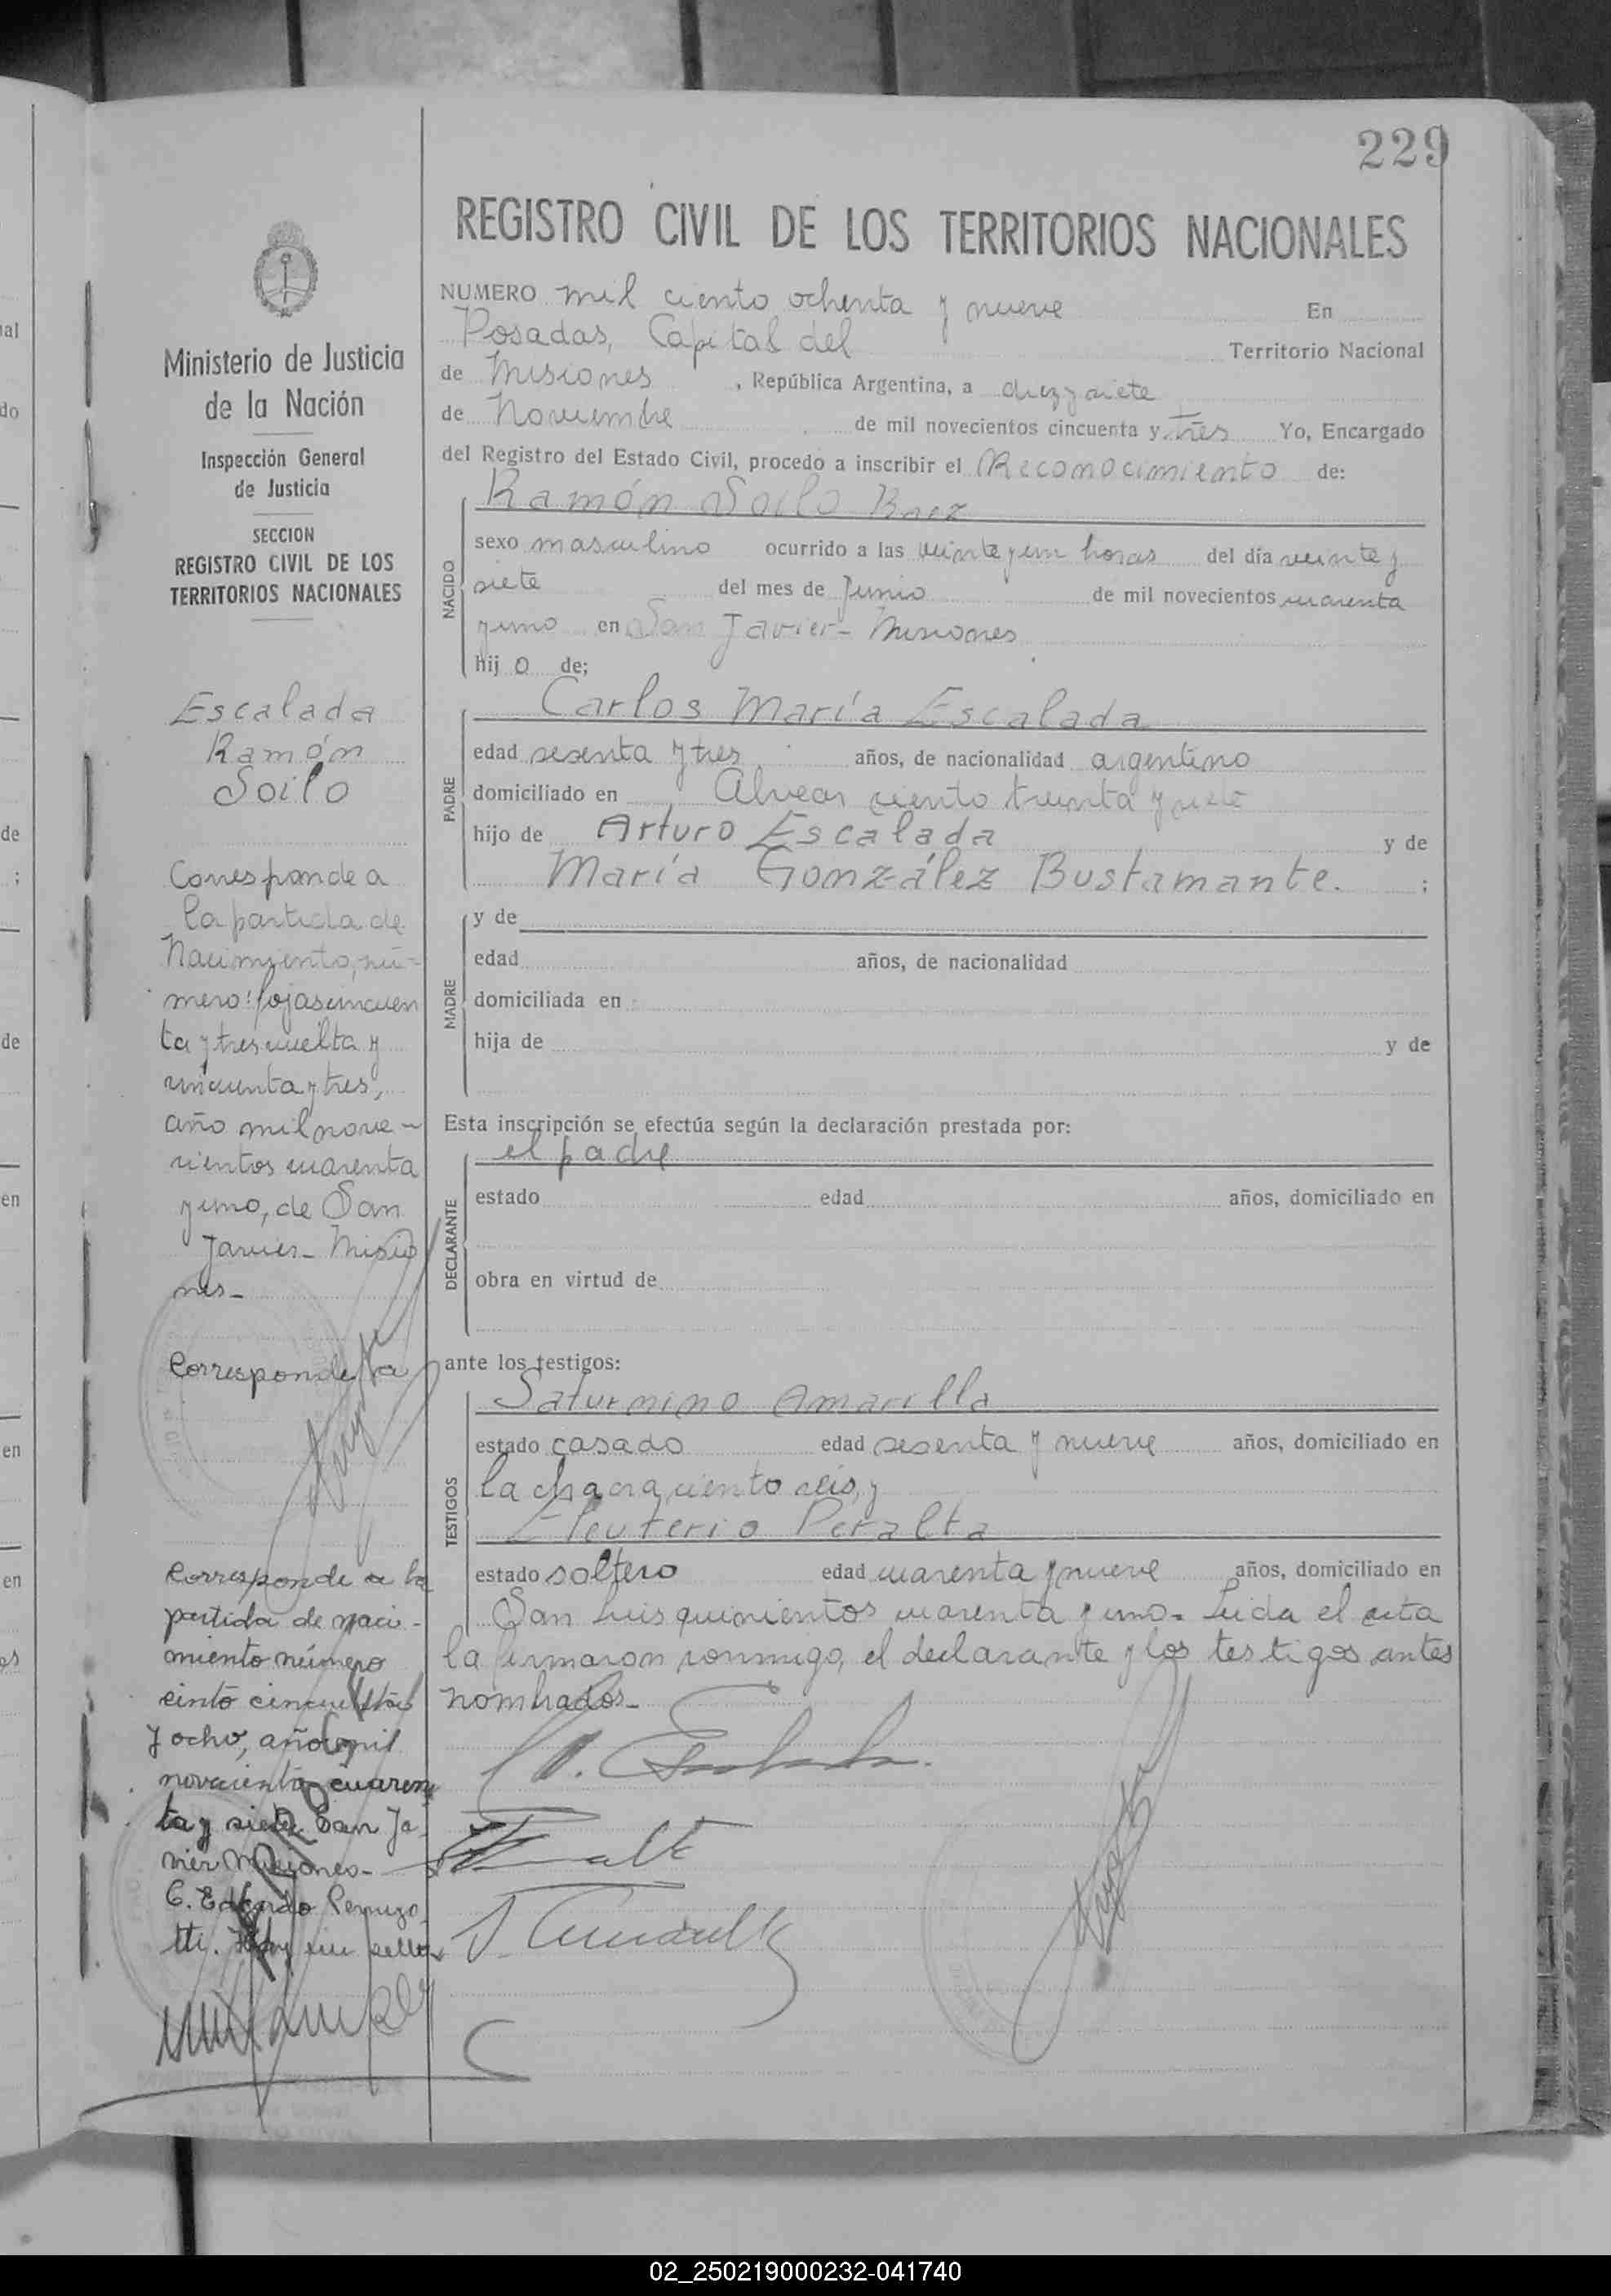 229
REGISTRO CIVIL DE LOS TERRITORIOS NACIONALES
Ministerio de Justicia
de la Nación
Inspección General
de Justicia
SECCION
REGISTRO CIVIL DE LOS
TERRITORIOS NACIONALES
Escalada
Ramón
Soilo
Corresponde a
la partida de
Nacimiento, nú-
mero: fojas cincuen
ta y tres vuelta y
cincuenta y tres,
año mil nove-
cientos cuarenta
y uno, de San
Javier - Misio
nes -
Corresponde a
Corresponde a la
partida de naci-
miento número
y ocho, año mil
novecientos cuaren
ta y siete San Ja
vier Misiones -
C. Edgardo
Hay un sello
NUMERO mil ciento ochenta y nueve En
Posadas, Capital del Territorio Nacional
de Misiones , República Argentina, a diez y siete
de Noviembre de mil novecientos cincuenta y tres Yo, Encargado
del Registro del Estado Civil, procedo a inscribir el Reconocimiento de:
Ramón Soilo Baez
NACIDO
sexo masculino ocurrido a las veinte y un horas del día veinte y
siete del mes de Junio de mil novecientos cuarenta
y uno en San Javier - Misiones
hij o de;
Carlos María Escalada
PADRE
edad sesenta y tres años, de nacionalidad argentino
domiciliado en Alvear ciento treinta y siete
hijo de Arturo Escalada y de
María González Bustamante. ;
MADRE
y de
edad años, de nacionalidad
domiciliada en
hija de y de
Esta inscripción se efectúa según la declaración prestada por:
el padre
DECLARANTE
estado edad años, domiciliado en
obra en virtud de
ante los testigos:
Saturnino Amarilla
TESTIGOS
estado casado edad sesenta y nueve años, domiciliado en
la chacra ciento seis, y
Eleuterio Peralta
estado soltero edad cuarenta y nueve años, domiciliado en
San Luis quinientos cuarenta y uno. Leida el acta
la firmaron conmigo, el declarante y los testigos antes
nombrados -
02_250219000232-041740